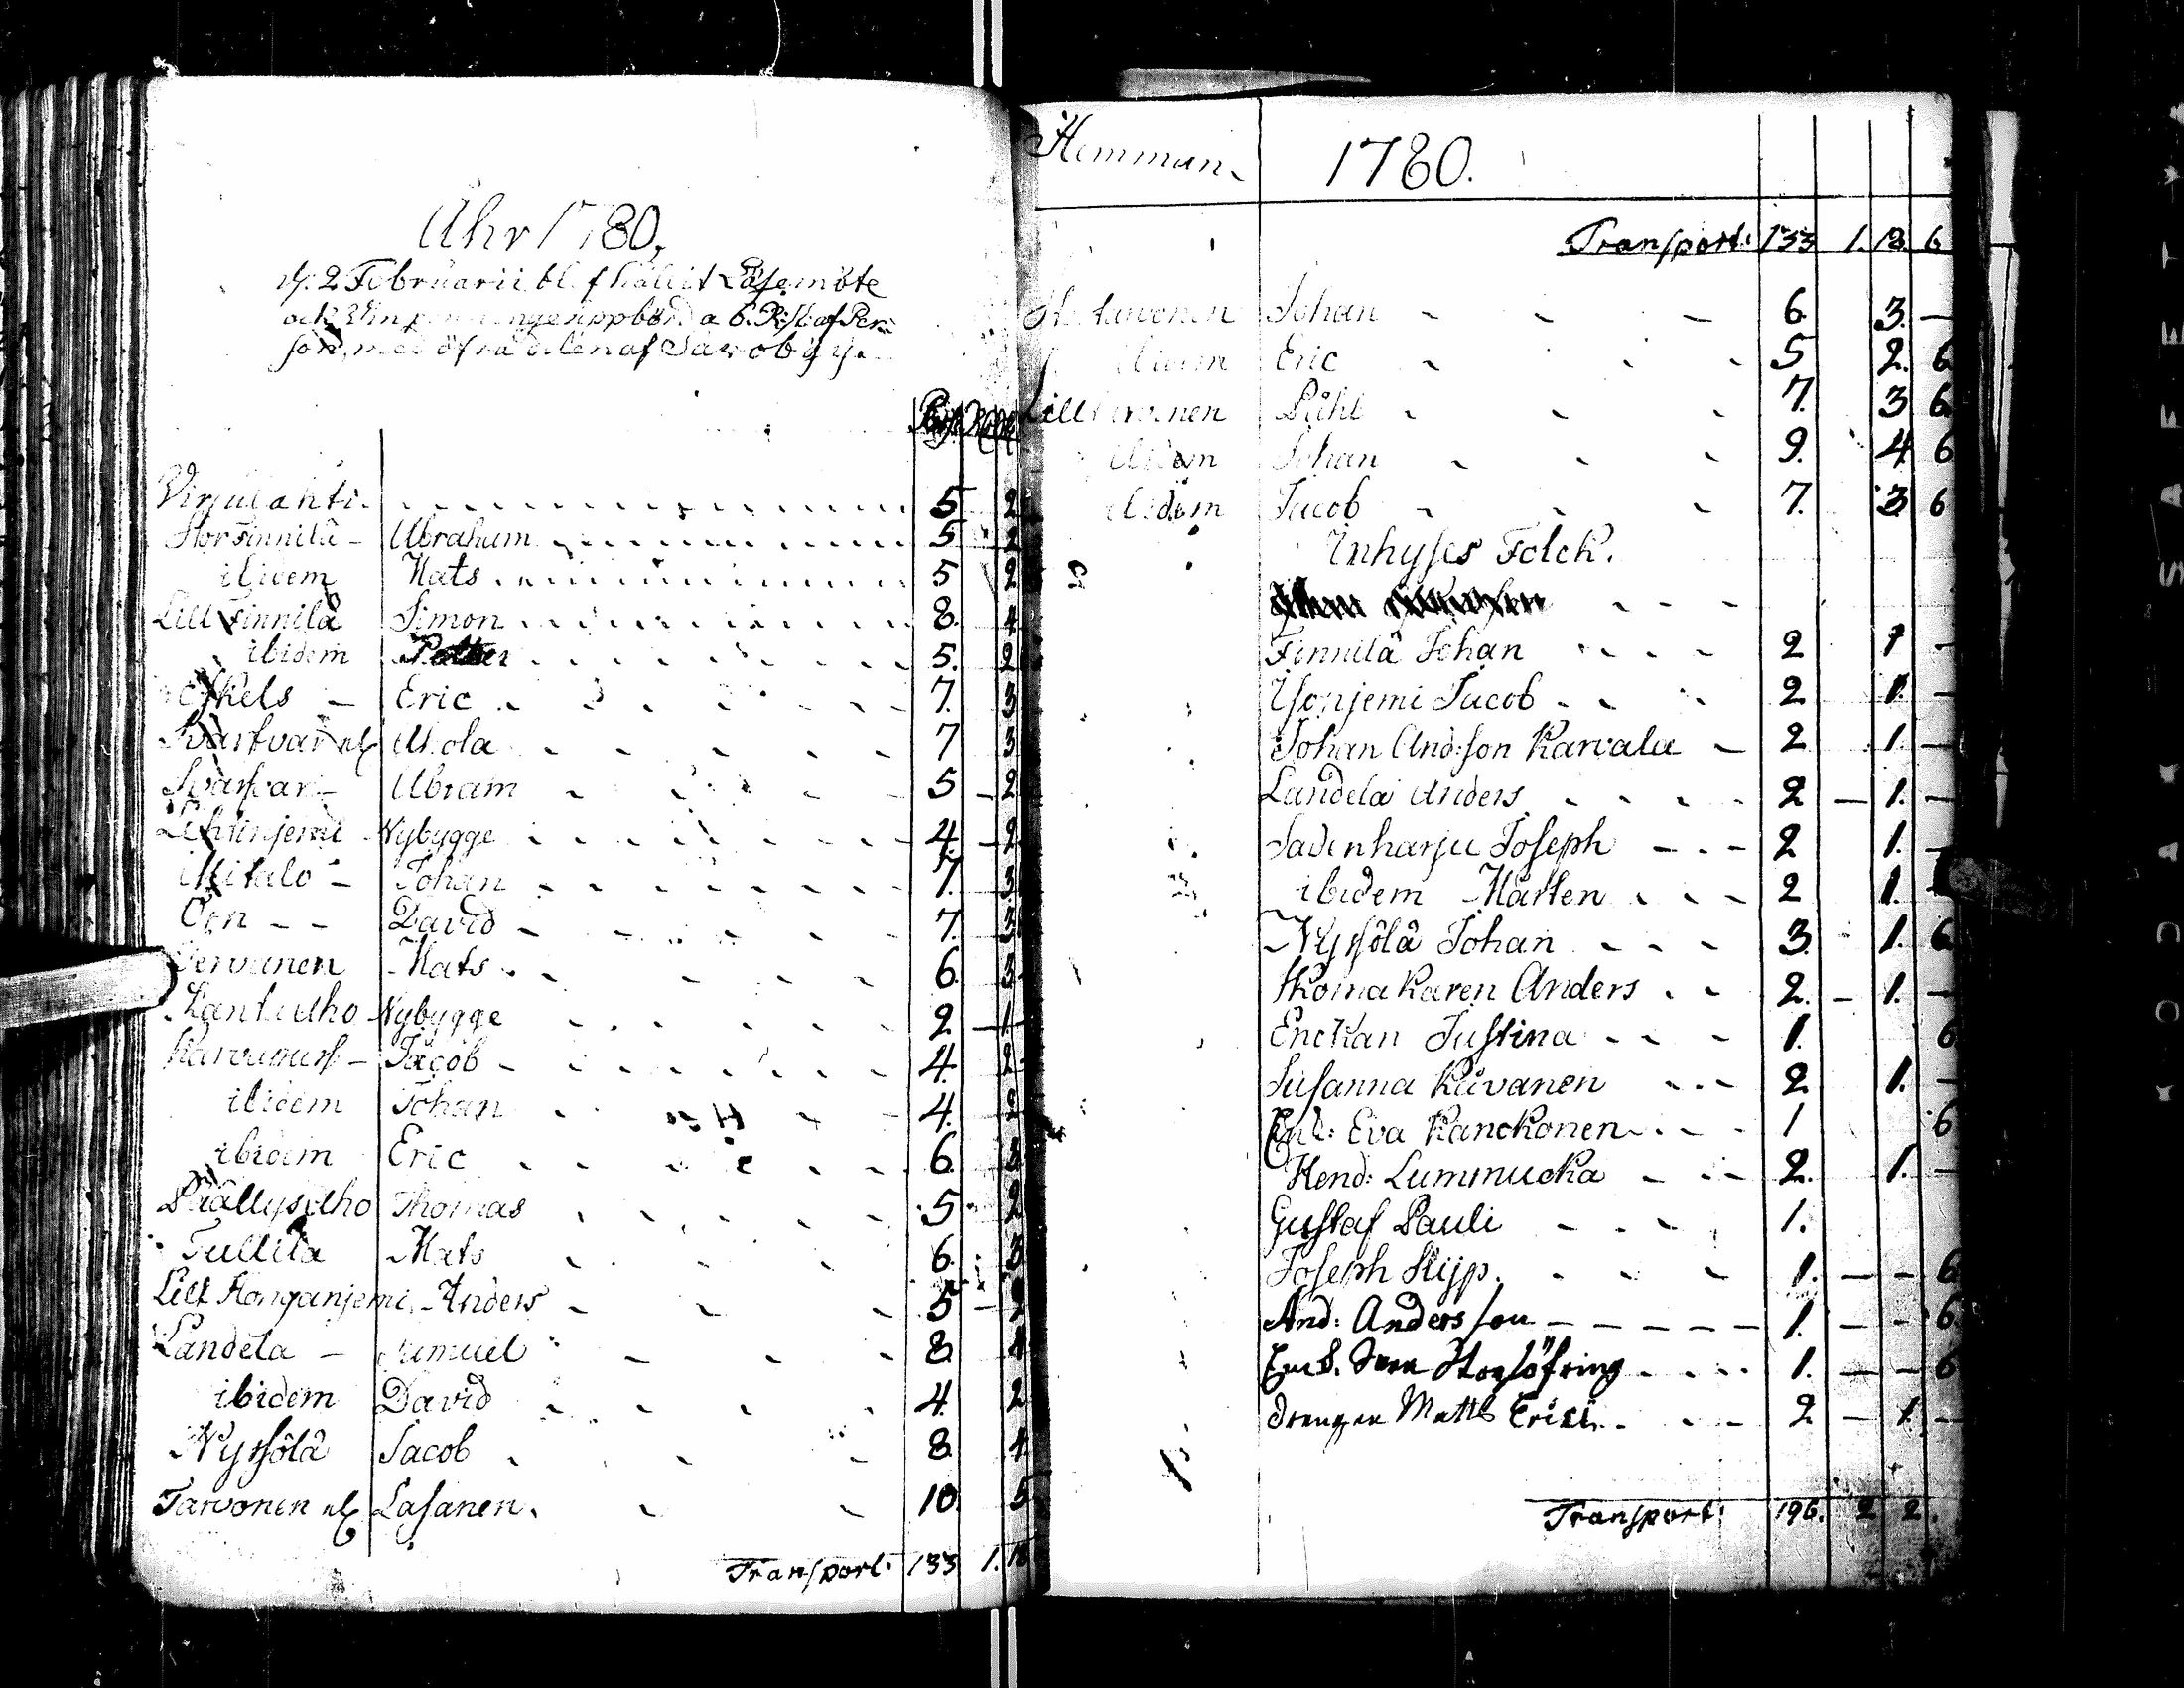 Åhr 1780,
d. 2 Februarii blef hållit Läsemöte
och Vinpenninge uppbörd a 6. Rst. af Per-
son, med öfra delen af Savoby
Virjulahti. 5 2
Storfinnilä - Abraham 5 2
ibidem Mats 5 2
Lill Finnilä Simon 8. 4
ibidem Petter 5. 2
Eskels - Eric 7. 3
Svartvar Ahola 7 3
Svartvar - Abram 5 2
Lehtinjemi Nybygge 4. 2
Mitalo - Johan 7. 3
Orn - - David 7. 3
Tervanen Mats 6. 3
Lantulho Nybygge 2 1
Karvanus - Jacob 4. 2
ibidem Johan 4. 2
ibidem Eric 6. 3
Thomas 5 2
Tullila Mats 6. 3
Lill Honganjemi - Anders 5 2
Landela - Samuel 8. 4
ibidem David 4. 2
Nyssölä Jacob 8. 4
Tarvonen Lasanen. 10. 5
Transport: 133 1. 18
Hemman. 1780.
Transport: 133 1. 18. 6
Tarvonen Johan 6. 3. -
ibidem Eric 5 2. 6
Lill Påhl 7. 3 6
ibidem Johan 9. 4 6
ibidem Jacob 7. 3 6
Inhyses Folck.
Finnilä Johan 2 1 -
Ysonjemi Jacob 2 1. -
Johan And:son Karvala 2 1. -
Landela Anders 2 - 1. -
Savenharju Joseph 2 1. -
ibidem Mårten 2 1. -
Nyssölä Johan 3. 1. 6
Skomakaren Anders 2. - 1. -
Enckan Justina 1. 6
Susanna Rävanen 2 1. -
Enk: Eva Kanckonen 1 6
Hend: Lummucka 2. 1. -
Gustaf Pauli 1.
Joseph Slijp. 1. - - 6
And: Andersson 1. - - 6
1. - - 6
Drengen Matts Erici 2 - 1. -
Transport: 196. 2 2.